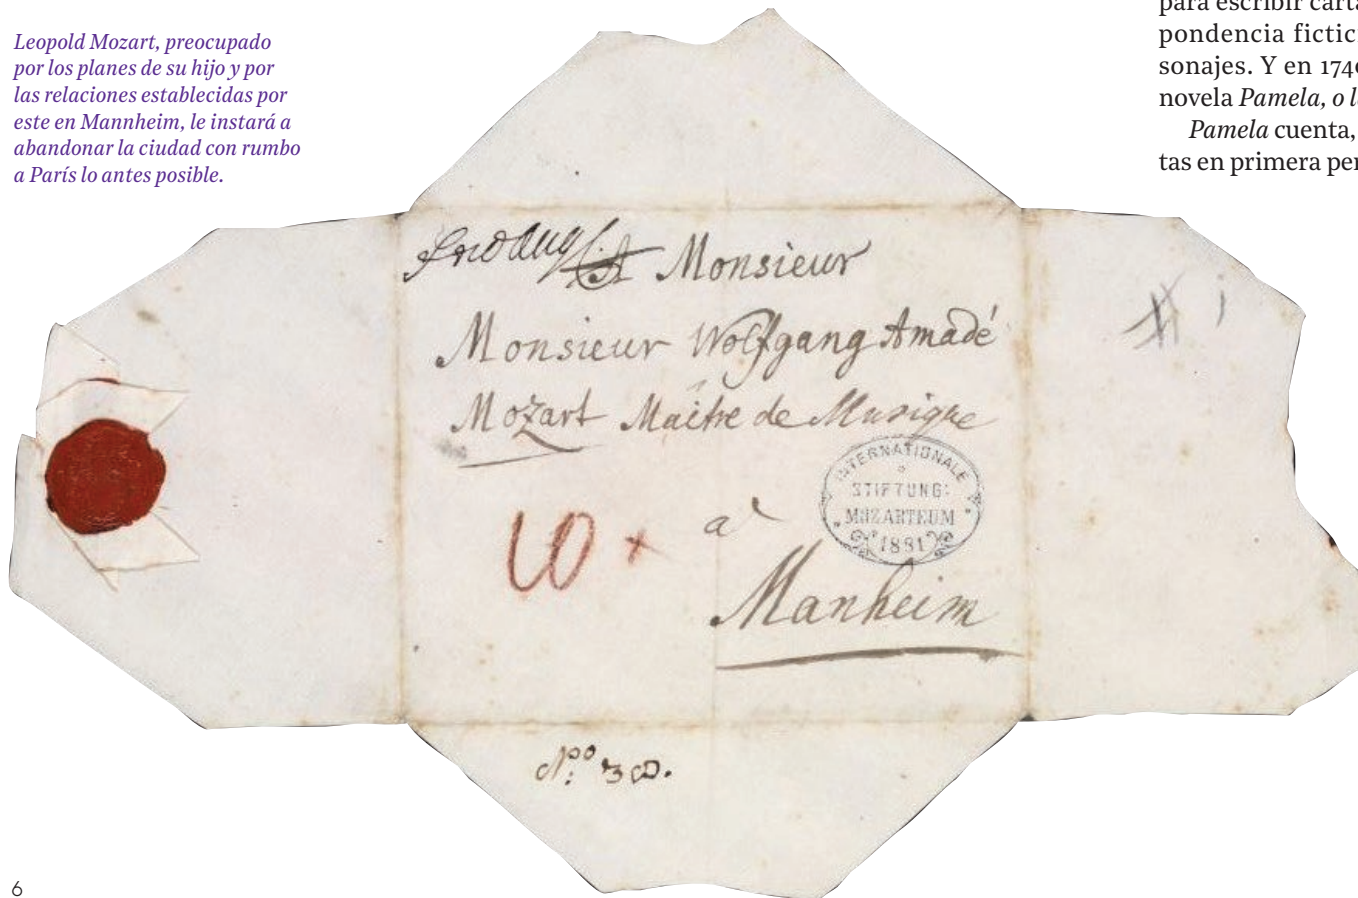 Leopold Mozart, preocupado
por los planes de su hijo y por
las relaciones establecidas por
este en Mannheim, le instará a
abandonar la ciudad con rumbo
a París lo antes posible.
para escribir carta
pondencia fictic
sonajes. Y en 174
novela Pamela, o l
Pamela cuenta,
tas en primera per
A Monsieur
Monsieur Wolfgang Amadé
Mozart Maitre de Musique
INTERNATIONALE
STIFTUNG:
"MOZARTEUM"
1881
à
Manheim
6